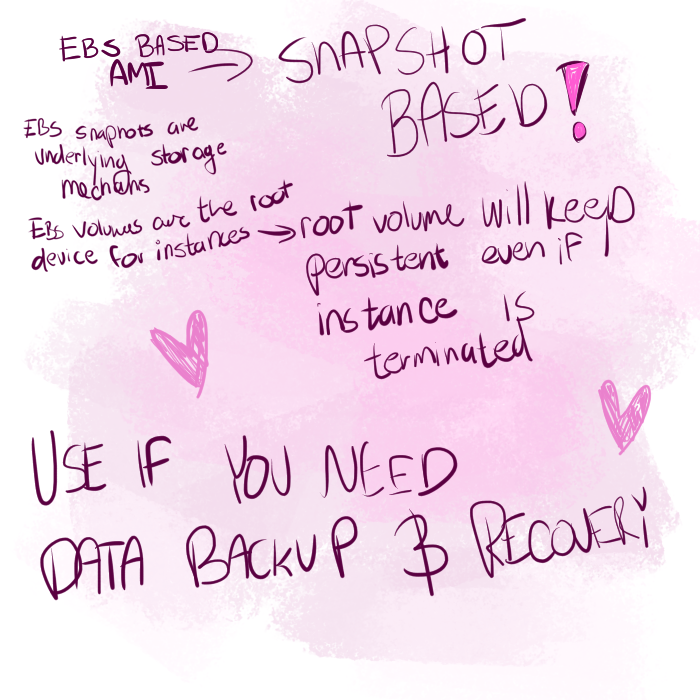 EBS BASED
AMI →
SNAPSHOT
BASED!
EBS snaphots are
underlying storage
mechans
EBS volumes are the root
device for instances →
root volume will keep
persistent even if
instance is
terminated
USE IF YOU NEED
DATA BACKUP & RECOVERY